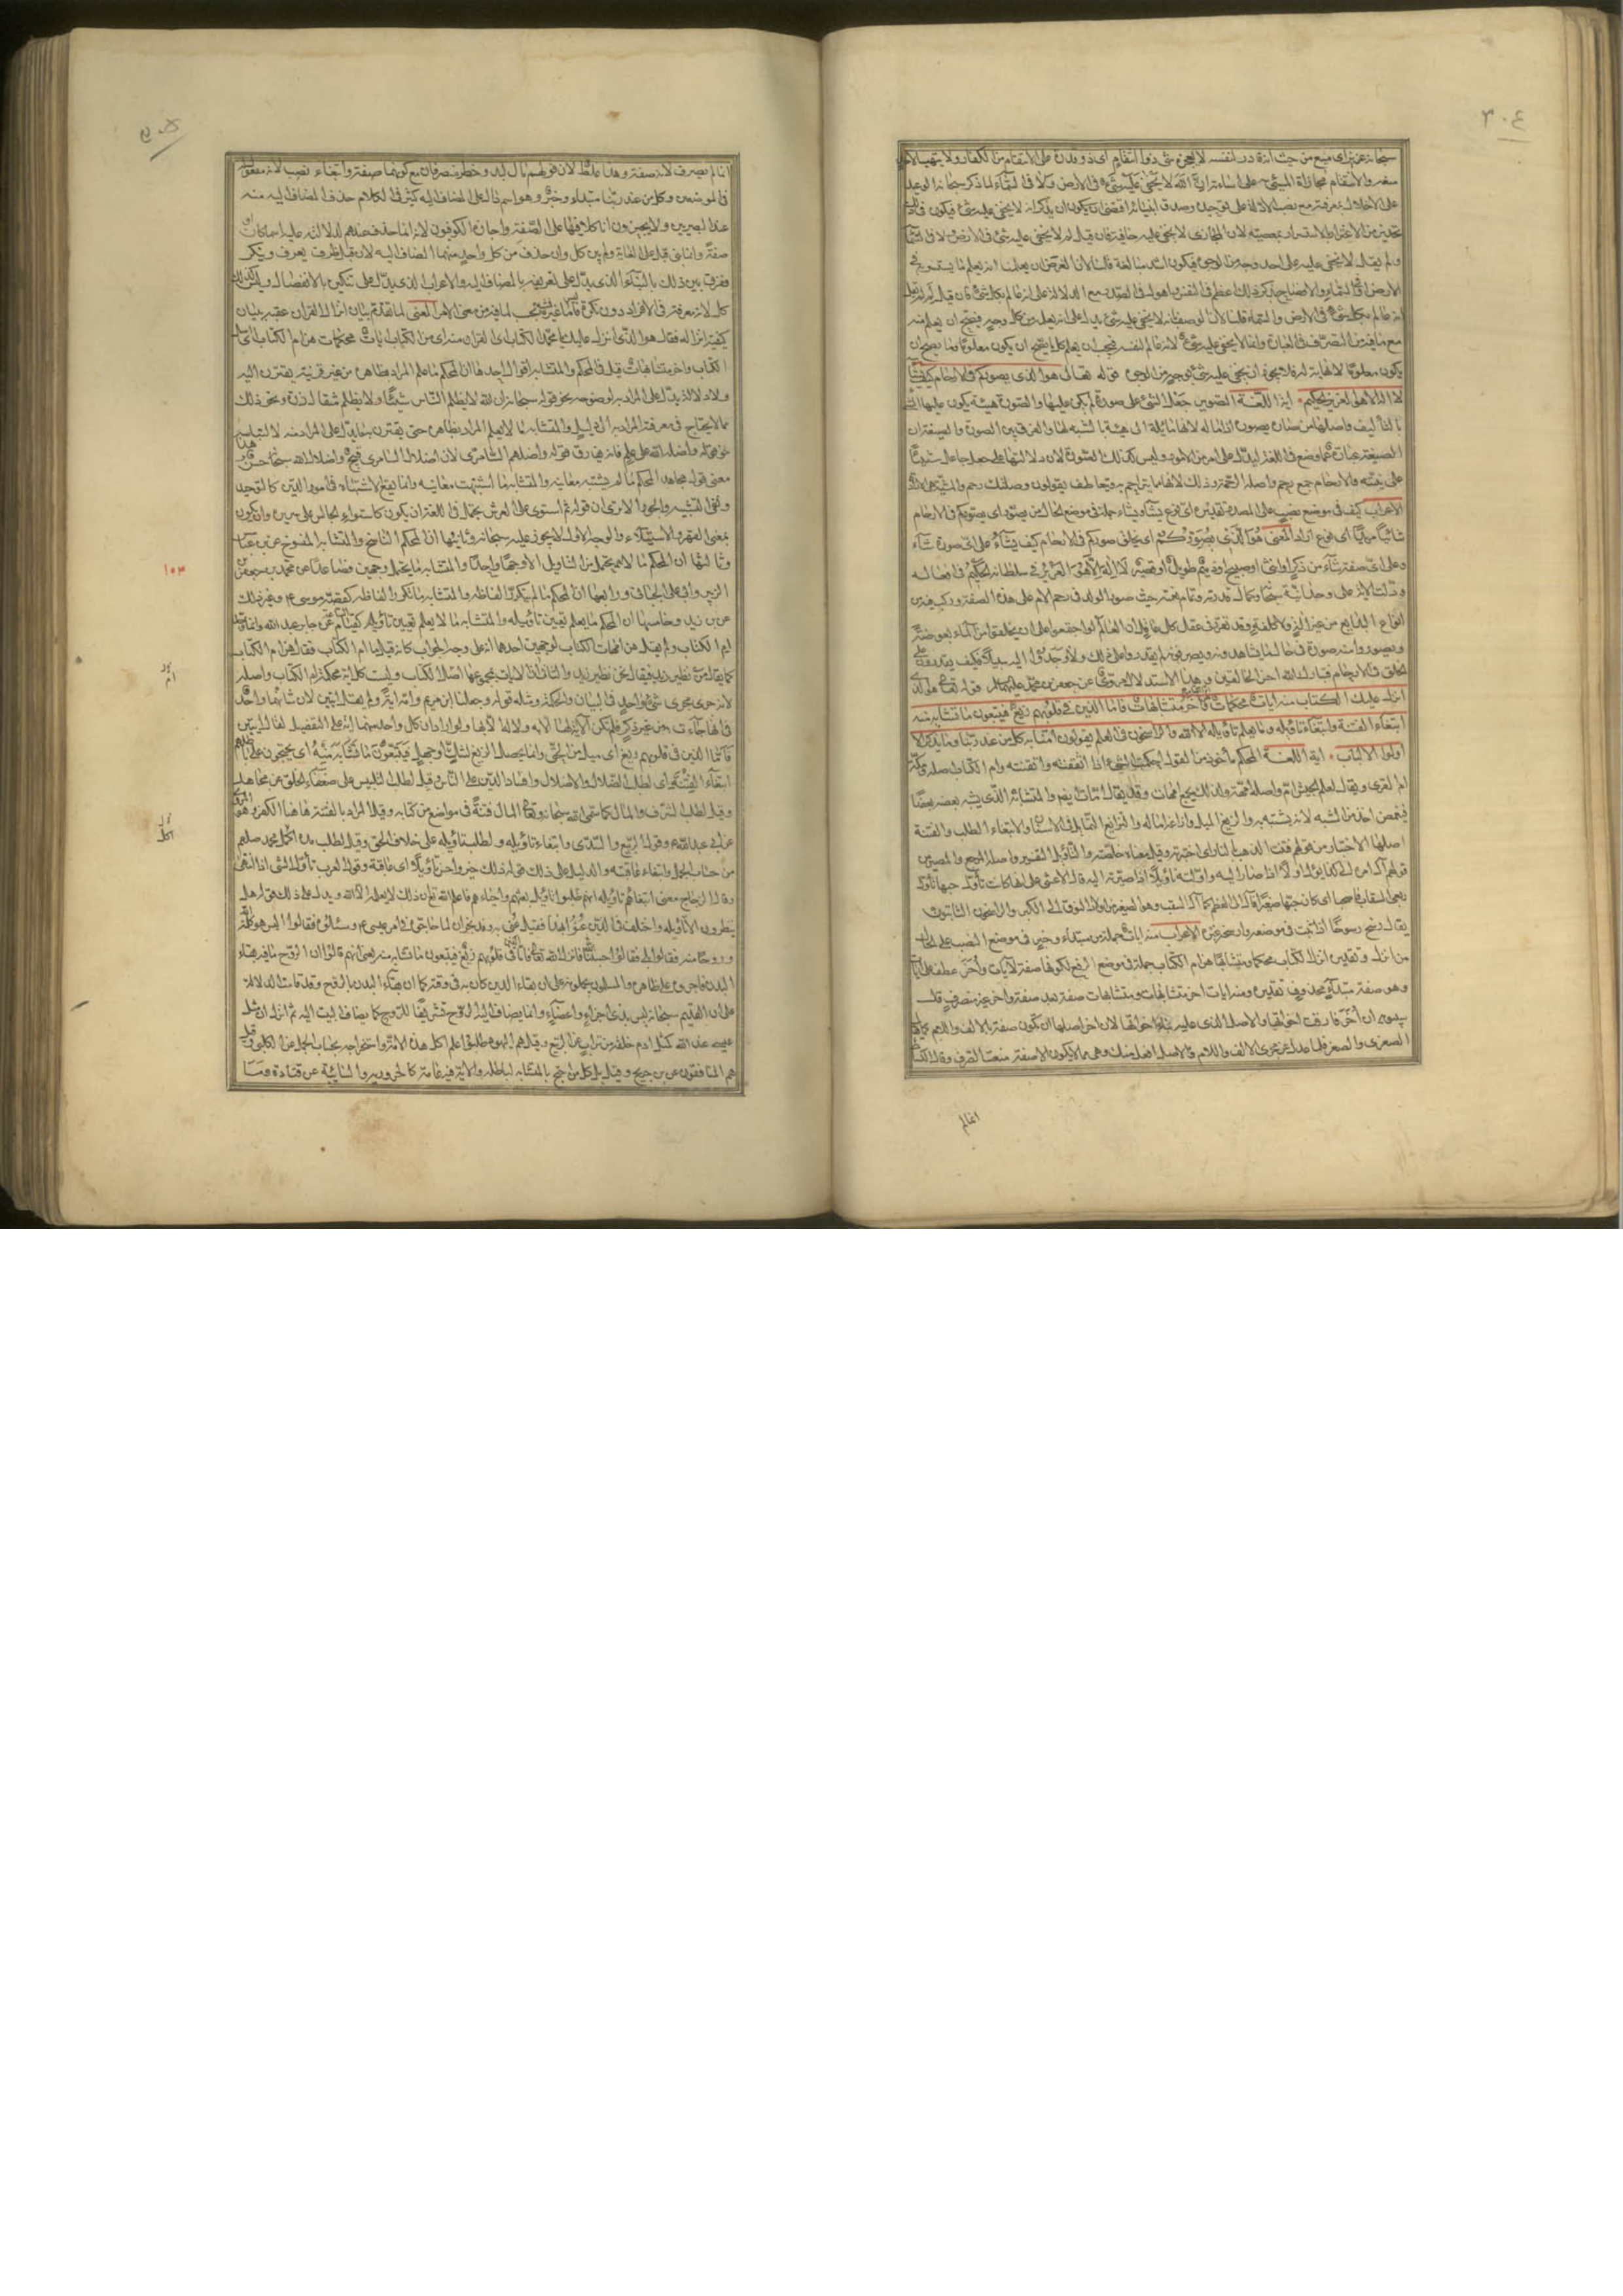 ٣٠٤
سبحانه عزيز اى ممتنع من حيث انه قادر لنفسه لا يعجزه شئ ذو انتقام اى ذو قدرة على الانتقام من الكفار ولا يتهيأ لاحد
منعه والانتقام مجازاة المسئ على اساءته ان الله لا يخفى عليه شئ فى الارض ولا فى السماء لما ذكر سبحانه الوعيد
على الاخلال بمعرفته مع نصب الادلة على توحيده وصدق انبيائه اقتضى ان يذكر انه لا يخفى عليه شئ فيكون فى ذلك
تحذير من الاغترار بالاستسرار بمعصيته لان المجازى لا يخفى عليه خافية فان قيل لم قال لا يخفى عليه شئ فى الارض ولا فى السماء
ولم يقل لا يخفى عليه على احد وجه من الوجوه فيكون اشد مبالغة قلنا لان الغرض ان يعلمنا انه يعلم ما يستسر به فى
الارض او فى السماء والافصاح بذكر ذلك اعظم فى النفس واهول فى الصدر مع الدلالة على انه عالم بكل شئ فان قيل لم لم يقل
انه عالم بكل شئ فى الارض والسماء قلنا لان الوصف بانه لا يخفى عليه شئ يدل على انه يعلمه من كل وجه يصح ان يعلم منه
مع ما فيه من التصرف فى العبارة وانما لا يخفى عليه شئ لانه عالم لنفسه فيجب ان يعلم كل ما يصح ان يكون معلوما وما يصح ان
يكون معلوما لا نهاية له فلا يجوز ان يخفى عليه شئ بوجه من الوجوه قوله تعالى هو الذى يصوركم فى الارحام كيف يشاء
لا اله الا هو العزيز الحكيم اية اللغة التصوير جعل الشئ على صورة لم يكن عليها والصورة هيئة يكون عليها الشئ
بالتأليف واصلها من صاره يصوره اذا اماله لانها مائلة الى هيئة بالشبه لها والفرق بين الصورة والصيغة ان
الصيغة عبارة عما وضع فى اللغة ليدل على امر من الامور وليس كذلك الصورة لان دلالتها على جعل جاعل
على بنيته والارحام جمع رحم واصله الرحمة وذلك لانها مما يتراحم به ويتعاطف يقولون وصلتك رحم والمشية هى الارادة
الاعراب كيف فى موضع نصب على المصدر تقديره اى نوع يشاء ويشاء جملة فى موضع الحال من يصور اى يصوركم فى الارحام
شائيا مريدا اى نوع اراد المعنى هو الذى يصوركم اى يخلق صوركم فى الارحام كيف يشاء على اى صورة شاء
وعلى اى صفة شاء من ذكر او انثى او صبيح او ذميم طويل او قصير لا اله الا هو العزيز فى سلطانه الحكيم فى افعاله
وذلك الاية على وحدانية الله سبحانه وكمال قدرته وتمام حكمته حيث صور الولد فى رحم الام على هذه الصفة وركب فيه من
انواع البدايع من غير الة ولا كلفة وقد تقرر فى عقل كل عاقل ان العالم لو اجتمعوا على ان يخلقوا من الماء بعوضة
ويصوروا منه صورة فى حال ما يشاهدونه ويصرفونه لم يقدروا على ذلك ولا وجدوا اليه سبيلا فكيف يقدرون على
الخلق فى الارحام فتبارك الله احسن الخالقين وهذا الاستدلال مروى عن جعفر بن محمد عليهما السلام قوله تعالى هو الذى
انزل عليك الكتاب منه ايات محكمات هن ام الكتاب واخر متشابهات فاما الذين فى قلوبهم زيغ فيتبعون ما تشابه منه
ابتغاء الفتنة وابتغاء تأويله وما يعلم تأويله الا الله والراسخون فى العلم يقولون امنا به كل من عند ربنا وما يذكر الا
اولوا الالباب اية اللغة المحكم مأخوذ من القول احكمت الشئ اذا اتقفته واتقنته وام الكتاب اصله
ام القرى ويقال لعلم الجيش ام واصله امهة ولذلك يجمع امهات وقد يقال امات ايضا والمتشابه الذى يشبه بعضه بعضا
فيغمض اخذ من الشبه لانه يشتبه به المراد والزيغ الميل وازاغه اماله والتزايغ التمايل فى الاسنان والابتغاء الطلب والفتنة
اصلها الاختبار من قولهم فتنت الذهب بالنار اى اختبرته وقيل معناه خلصته والتأويل التفسير واصله المرجع والمصير من
قولهم آل امره الى كذا يؤل اولا اذا صار اليه واولته تأويلا اذا صيرته اليه قال الاعشى على انها كانت تأول حبها تأول
ربعى السقاب فاصحبا اى كان حبها صغيرا فآل الى العظم كما آل السقب وهو الصغير من اولاد النوق الى الكبر والراسخون الثابتون
يقال رسخ رسوخا اذا ثبت فى موضعه وارسخه غيره الاعراب منه ايات جملة من مبتداء وخبر فى موضع النصب على الحال
من انزل وتقديره انزل الكتاب محكما ومتشابها هن ام الكتاب جملة فى موضع الرفع لكونها صفة لايات واخر عطف على ايات
وهو صفة مبتداء محذوف تقديره ومنه ايات اخر متشابهات ومتشابهات صفة بعد صفة واخر غير منصرف قال
سيبويه ان اخر فارقت اخواتها والاصل الذى عليه بناء اخواتها لان اخر اصلها ان تكون صفة بالالف واللام كما
الصغرى والصغر فلما عدل عن مجرى الالف واللام واصل افعل منك وهى مما لا يكون الا صفة منعت الصرف وقال الكسائى
انما لم
٣٠٥
انما لم يصرف لانه صفة وهذا غلط لان قولهم مال لبد وحطم منصرفان مع كونهما صفة وابتغاء نصب لانه مفعول له
فى الموضعين وكل من عند ربنا مبتداء وخبر وهو اسم دال على المضاف اليه كثر فى الكلام حذف المضاف اليه منه
عند البصريين ولا يجيزون انا كلا فيها على الصفة واجازه الكوفيون لانه انما حذف عندهم لدلالته عليه اسما كان او
صفة وانما بنى قبل على الغاية ولم يبن كل وان حذف من كل واحد منهما المضاف اليه لان قبل ظرف يعرف وينكر
ففرق بين ذلك بالبناء الذى يدل على تعريفه بالمضاف اليه والاعراب الذى يدل على تنكيره بالانفصال وليس كذلك
كل لانه معرفة فى الافراد دون نكرة فاما ليس غير فمشبه بحسب لما فيه من معنى الامر المعنى لما تقدم بيان انزال القران عقبه ببيان
كيفية انزاله فقال هو الذى انزل عليك يا محمد الكتاب اى القران منه اى من الكتاب ايات محكمات هن ام الكتاب اى اصل
الكتاب واخر متشابهات قيل فى المحكم والمتشابه اقوال احدها ان المحكم ما علم المراد بظاهره من غير قرينة يقترن اليه
ولا دلالة يدل على المراد به لوضوحه نحو قوله سبحانه ان الله لا يظلم الناس شيئا ولا يظلم مثقال ذرة ونحو ذلك
مما لا يحتاج فى معرفة المراد به الى دليل والمتشابه ما لا يعلم المراد بظاهره حتى يقترن به ما يدل على المراد منه لالتباسه
نحو قوله واضله الله على علم فانه يفارق قوله واضلهم السامرى لان اضلال السامرى قبيح واضلال الله سبحانه حسن وهذا
معنى قول مجاهد المحكم ما لم يشتبه معانيه والمتشابه ما اشتبهت معانيه وانما يقع الاشتباه فى امور الدين كالتوحيد
ونفى التشبيه والجور الا ترى ان قوله ثم استوى على العرش يحتمل فى اللغة ان يكون كاستواء الجالس على سريره وان يكون
بمعنى القهر والاستيلاء والوجه الاول لا يجوز عليه سبحانه وثانيها ان المحكم الناسخ والمتشابه المنسوخ عن بن عباس
وثالثها ان المحكم ما لا يحتمل من التأويل الا وجها واحدا والمتشابه ما يحتمل وجهين فصاعدا عن محمد بن جعفر بن
الزبير وابى على الجبائى ورابعها ان المحكم ما لم يتكرر الفاظه والمتشابه ما تكرر الفاظه كقصة موسى ع وغير ذلك
عن بن زيد وخامسها ان المحكم ما يعلم تعيين تأويله والمتشابه ما لا يعلم تعيين تأويله كقيام الساعة عن جابر بن عبد الله وانما وحد
ام الكتاب ولم يقل هن امهات الكتاب لوجهين احدهما انه على وجه الجواب كانه قيل ما ام الكتاب فقال هن ام الكتاب
كما يقال من نظير زيد فيقال نحن نظير زيد والثانى ان الايات بمجموعها اصل الكتاب وليست كل اية محكمة ام الكتاب واصله
لانها جرى مجرى شئ واحد فى البيان والحكمة ومثله قوله وجعلنا ابن مريم وامه اية ولم يقل ايتين لان شأنهما واحد
فى انها جاءت به من غير ذكر فلم تكن الاية لها الا به ولا له الا بها ولو اراد ان كل واحد منهما اية على التفصيل لقال ايتين
فاما الذين فى قلوبهم زيغ اى ميل عن الحق وانما يحصل الزيغ لشك او جهل فيتبعون ما تشابه منه اى يحتجون به على باطلهم
ابتغاء الفتنة اى لطلب الضلال والاضلال وافساد الدين على الناس وقيل لطلب التلبيس على ضعفاء الخلق عن مجاهد
وقيل لطلب الشرف والمال كما سمى الله سبحانه وتعالى المال فتنة فى مواضع من كتابه وقيل المراد بالفتنة هاهنا الكفر وهو المروى
عن ابى عبد الله ع وقول الربيع والسدى وابتغاء تأويله ولطلب تأويله على خلاف الحق وقيل لطلب مدة اكل محمد صلعم
من حساب الجمل وابتغاء عاقبته والدليل على ذلك قوله ذلك خير واحسن تأويلا اى عاقبة وقول العرب تأول الشئ اذا انتهى
وقال الزجاج معنى ابتغائهم تأويله انهم طلبوا تأويل بعثهم واحيائهم فاعلم الله تعالى ان ذلك لا يعلمه الا الله ويدل على ذلك قوله هل
ينظرون الا تأويله واختلف فى الذين عنوا بهذا فقيل عنى به وفد نجران لما حاجوا فى امر عيسى ع وسئلوه فقالوا اليس هو كلمة الله
وروحا منه فقال بلى فقالوا حسبنا فانزل الله تعالى فاما الذين فى قلوبهم زيغ فيتبعون ما تشابه منه يعنى انهم قالوا ان الروح ما فيه بقاء
البدن فاجروه على ظاهره والمسلمون يحملونه على ان بقاء الدين كان به فى وقته كما ان بقاء البدن بالروح وقد قامت الدلالة
على ان القديم سبحانه ليس بذى اجزاء واعضاء وانما يضاف اليه الروح تشريفا للروح كما يضاف البيت اليه ثم انزل ان مثل
عيسى عند الله كمثل ادم خلقه من تراب عن الربيع وقيل هم اليهود طلبوا علم اكل هذه الامة واستخراجه بحساب الجمل عن الكلبى وقيل
هم المنافقون عن بن جريج وقيل بل كل من احتج بالمتشابه لباطله والاية فيه عامة كالحرورية والسبائية عن قتادة